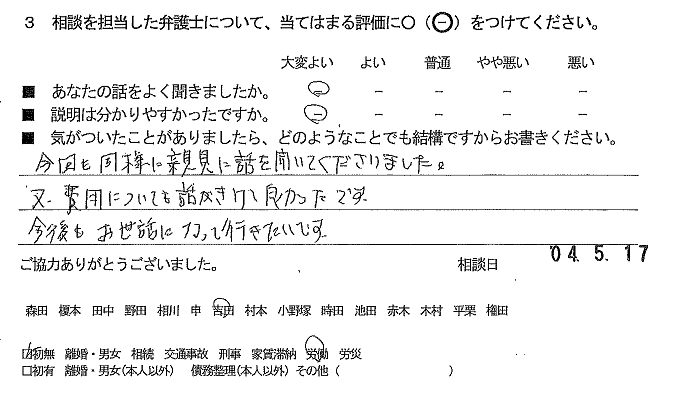 3 相談を担当した弁護士について、当てはまる評価に○（㊀）をつけてください。
大変よい よい 普通 やや悪い 悪い
■ あなたの話をよく聞きましたか。 － － － － －
■ 説明は分かりやすかったですか。 － － － － －
■ 気がついたことがありましたら、どのようなことでも結構ですからお書きください。
今回も同様に親見に話を聞いてくださりました。
又、費用についても話がきけて良かったです。
今後もお世話になって行きたいです。
ご協力ありがとうございました。 相談日 04.5.17
森田 榎本 田中 野田 相川 申 吉田 村本 小野塚 時田 池田 赤木 木村 平栗 権田
☑初無 離婚・男女 相続 交通事故 刑事 家賃滞納 労働 労災
□初有 離婚・男女(本人以外) 債務整理(本人以外) その他（ ）